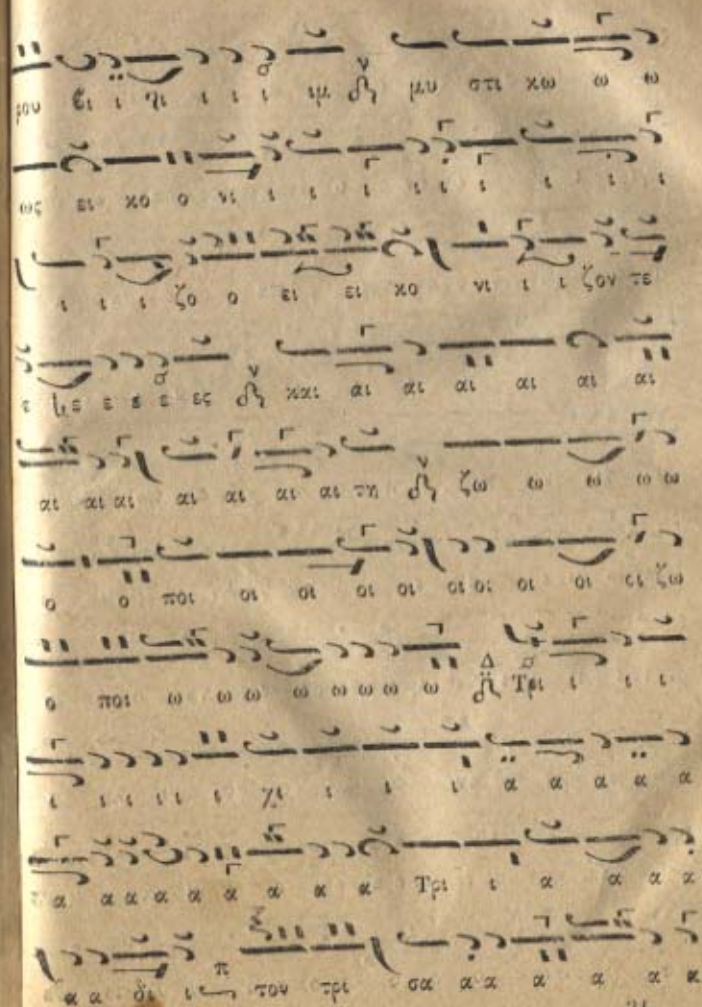 ρου ϐι ι χι ι ι ι ιμ ν μυ στι κω ω ω
ως ει κο ο νι ι ι ι ι ι ι ι ι ι
ι ι ι ζο ο ει ει κο νι ι ι ζον τε
ε ε ε ε ε ες ν και αι αι αι αι αι αι
αι αι αι αι αι αι αι τη ν ζω ω ω ω ω
ο ο ποι οι οι οι οι οι οι οι οι οι ζω
ο ποι ω ω ω ω ω ω ω Δ Τρι ι ι ι
ι ι ι ι ι ι χι ι ι ι α α α α α
α α α α α α α α α Τρι ι α α α α
α α δι ι π τον τρι σα α α α α α α